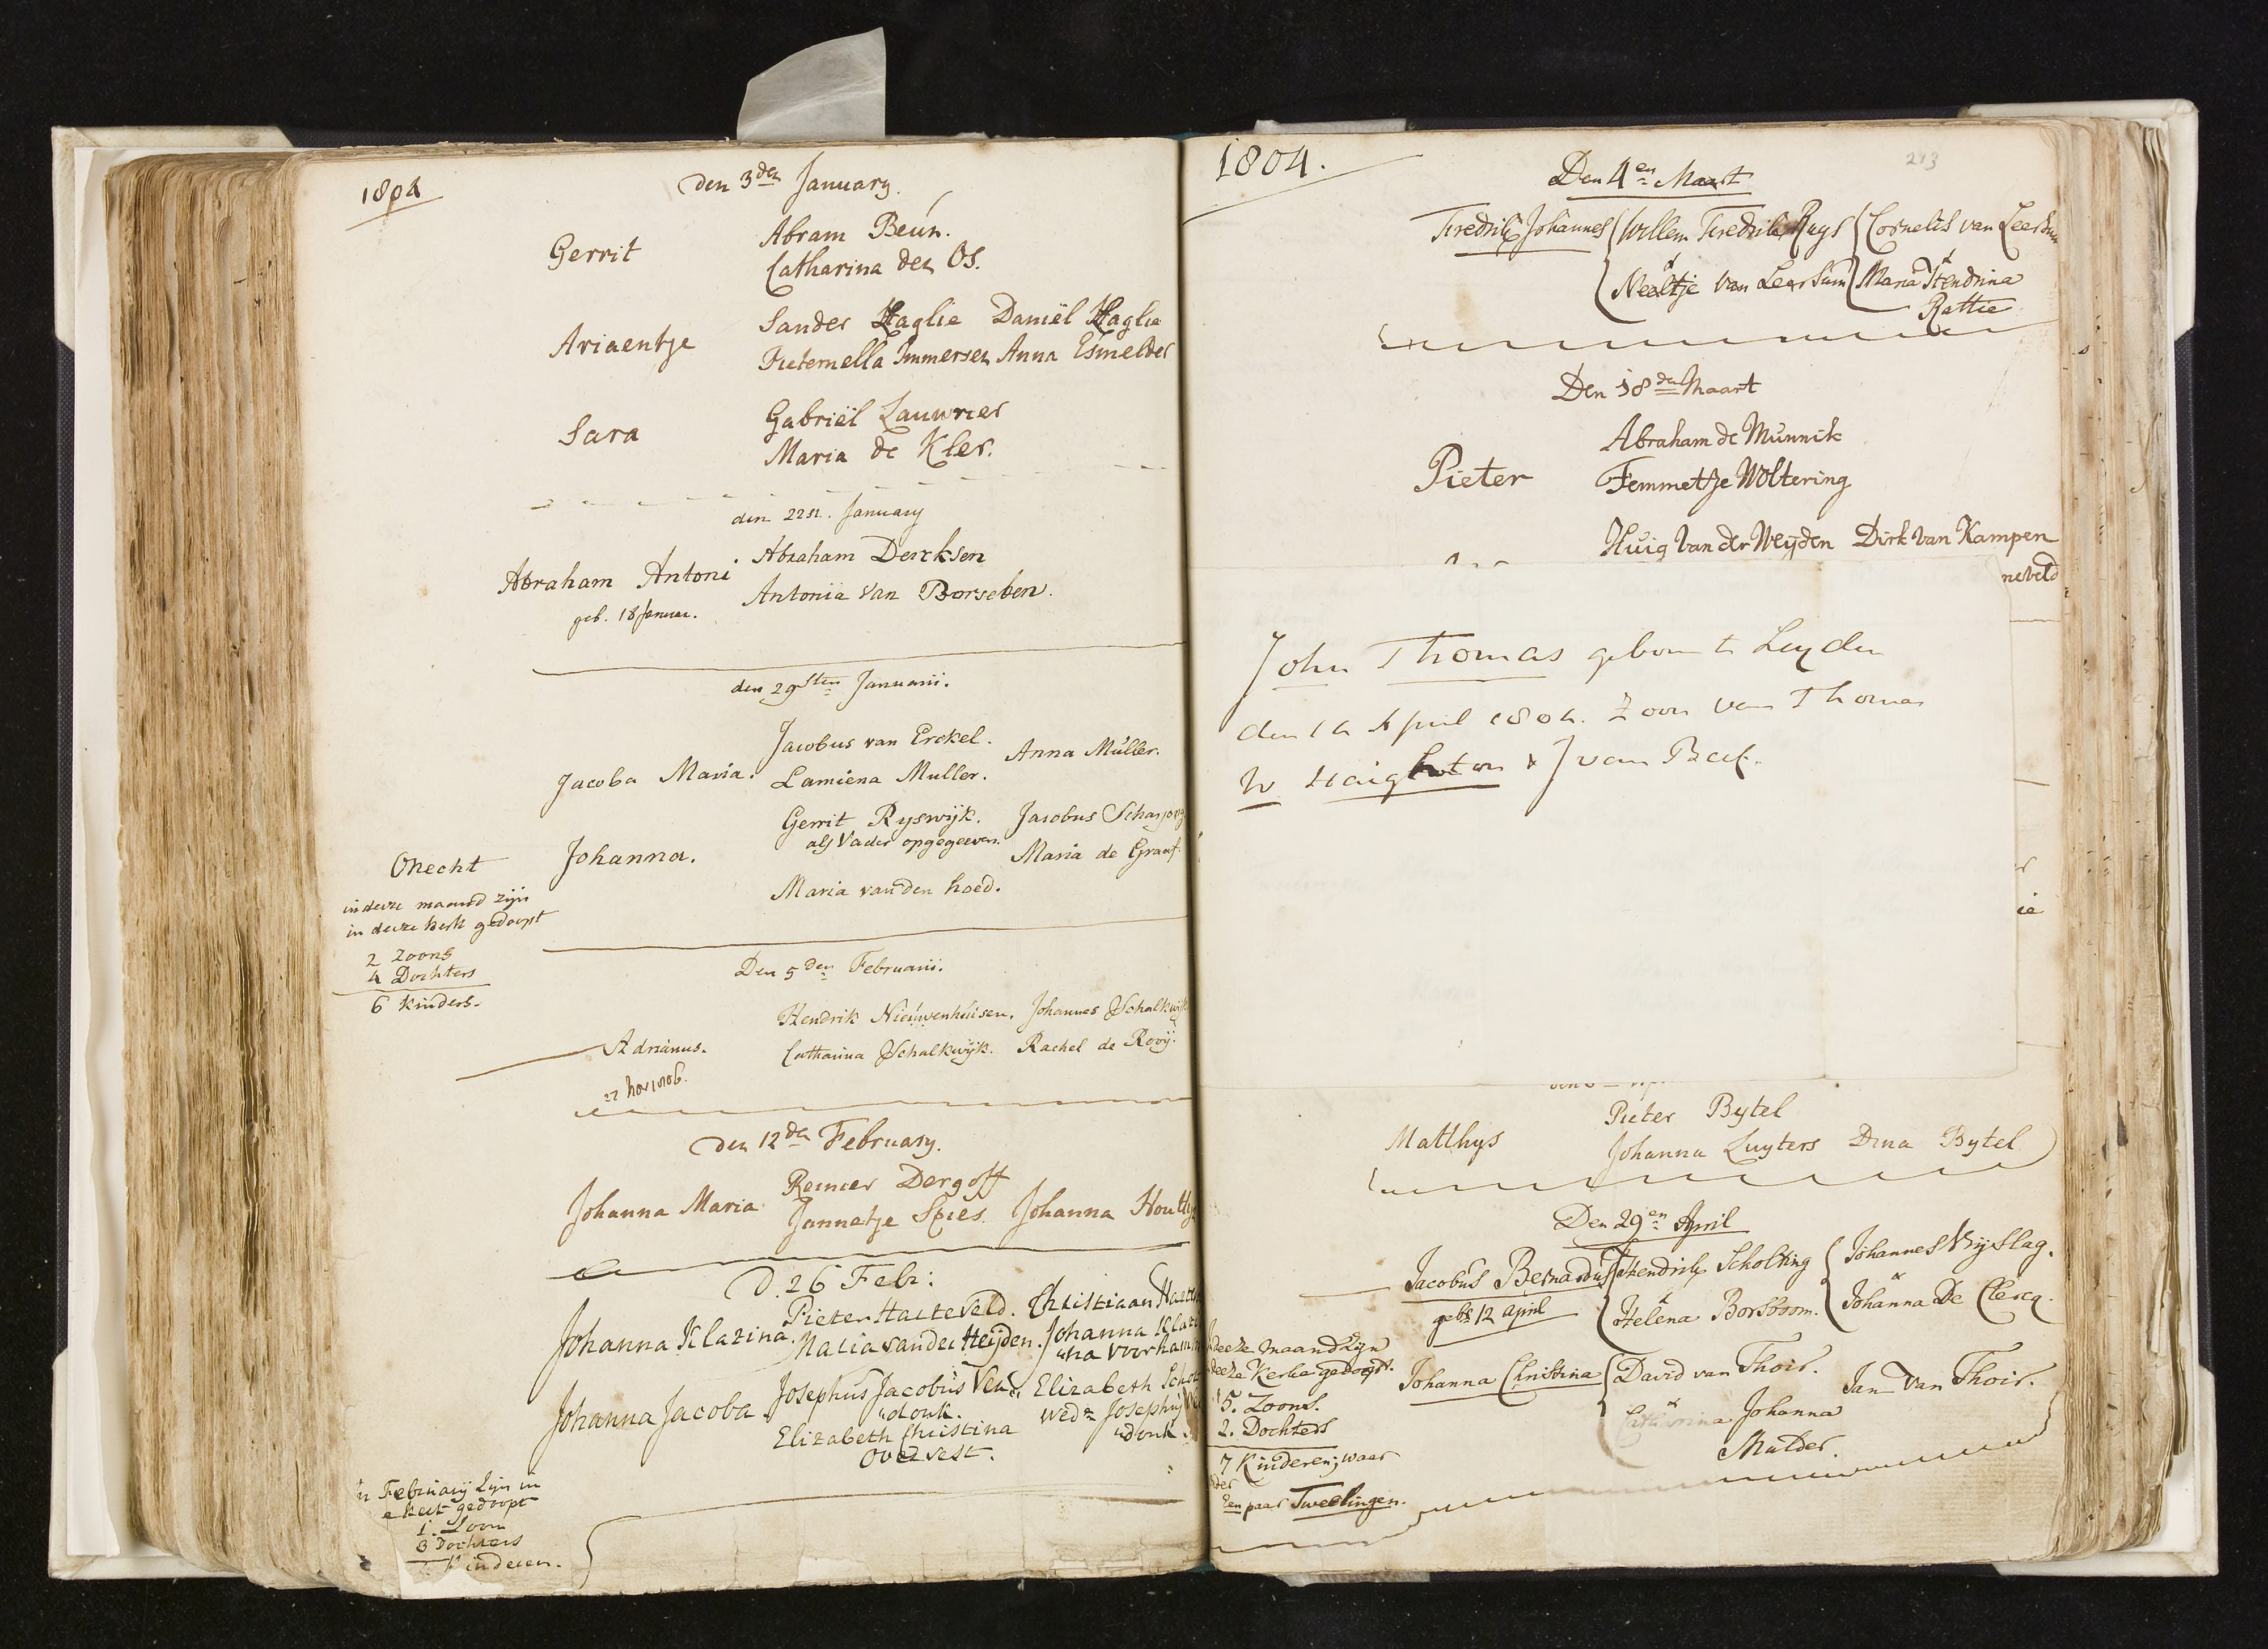 1804
den 3den January.
Gerrit
Abram Beún.
Catharina den Os.
Ariaentje
Sander Haglie Daniël Haglie
Pieternella Immersen Anna Esmelder
Sara
Gabriël Lauwrier
Maria de Kler.
den 22n. January
Abraham Antoni
Abraham Dercksen
geb. 18 Januar.
Antonia van Borselen.
den 29sten Januarii.
Jacoba Maria.
Jacobus van Erckel.
Lamiena Muller.
Anna Múller.
Onecht
Johanna.
Gerrit Ryswijk.
als Vader opgegeeven.
Maria van den hoed.
Jacobus
Maria de Graaf.
in deeze maand zijn
in deeze kerk gedoopt
2 Zoons
4 Dochters
6 kinders.
Den 5den Februarii.
Adrianus.
Hendrik Nieúwenhúisen. Johannes Schalkwijk
Catharina Schalkwijk. Rachel de Rooij.
27 nov 1806.
den 12den February.
Johanna Maria
Reinier Dergoff
Jannetje Spies. Johanna
D. 26 Febr:
Johanna Klazina.
Pieter Harteveld. Christiaan
Maria vander Heijden. Johanna
Johanna Jacoba
Josephus Jacobus Ven
"donk.
Elizabeth Christina
Overvest.
Elizabeth
wede Josephus
"donk.
February zijn in
kerk gedoopt
1. Zoon
3 Dochters
kinderen.
1804.
213
Den 4en Maart
Fredrik Johannes
Willem Fredrik Ruys
&
Neeltje van Leersum
Cornelis van Leersum
&
Maria Hendrina
Rattie
Den 18den Maart
Pieter
Abraham de Munnik
Femmetje Woltering
Huig van der Weijden Dirk van Kampen
neveld
John Thomas geboren te Leyden
den 14 April 1804. Zoon van Thomas
W Haighton & J van Baif.
Matthys
Pieter Bytel
Johanna Luyters Dina Bytel
Den 29en April
Jacobus Bernardus
gebn 12 april
Hendrik Scholting
&
Helena Borsboom.
Johannes Vyslag.
&
Johanna De Clercq.
deeze maand Zijn
deeze Kerke gedoopt.
5. Zoons.
2. Dochters
7 Kinderen; waar
der
Een paar Tweelingen.
Johanna Christina
David van Thoir.
&
Catharina Johanna
Mulder.
Jan van Thoir.